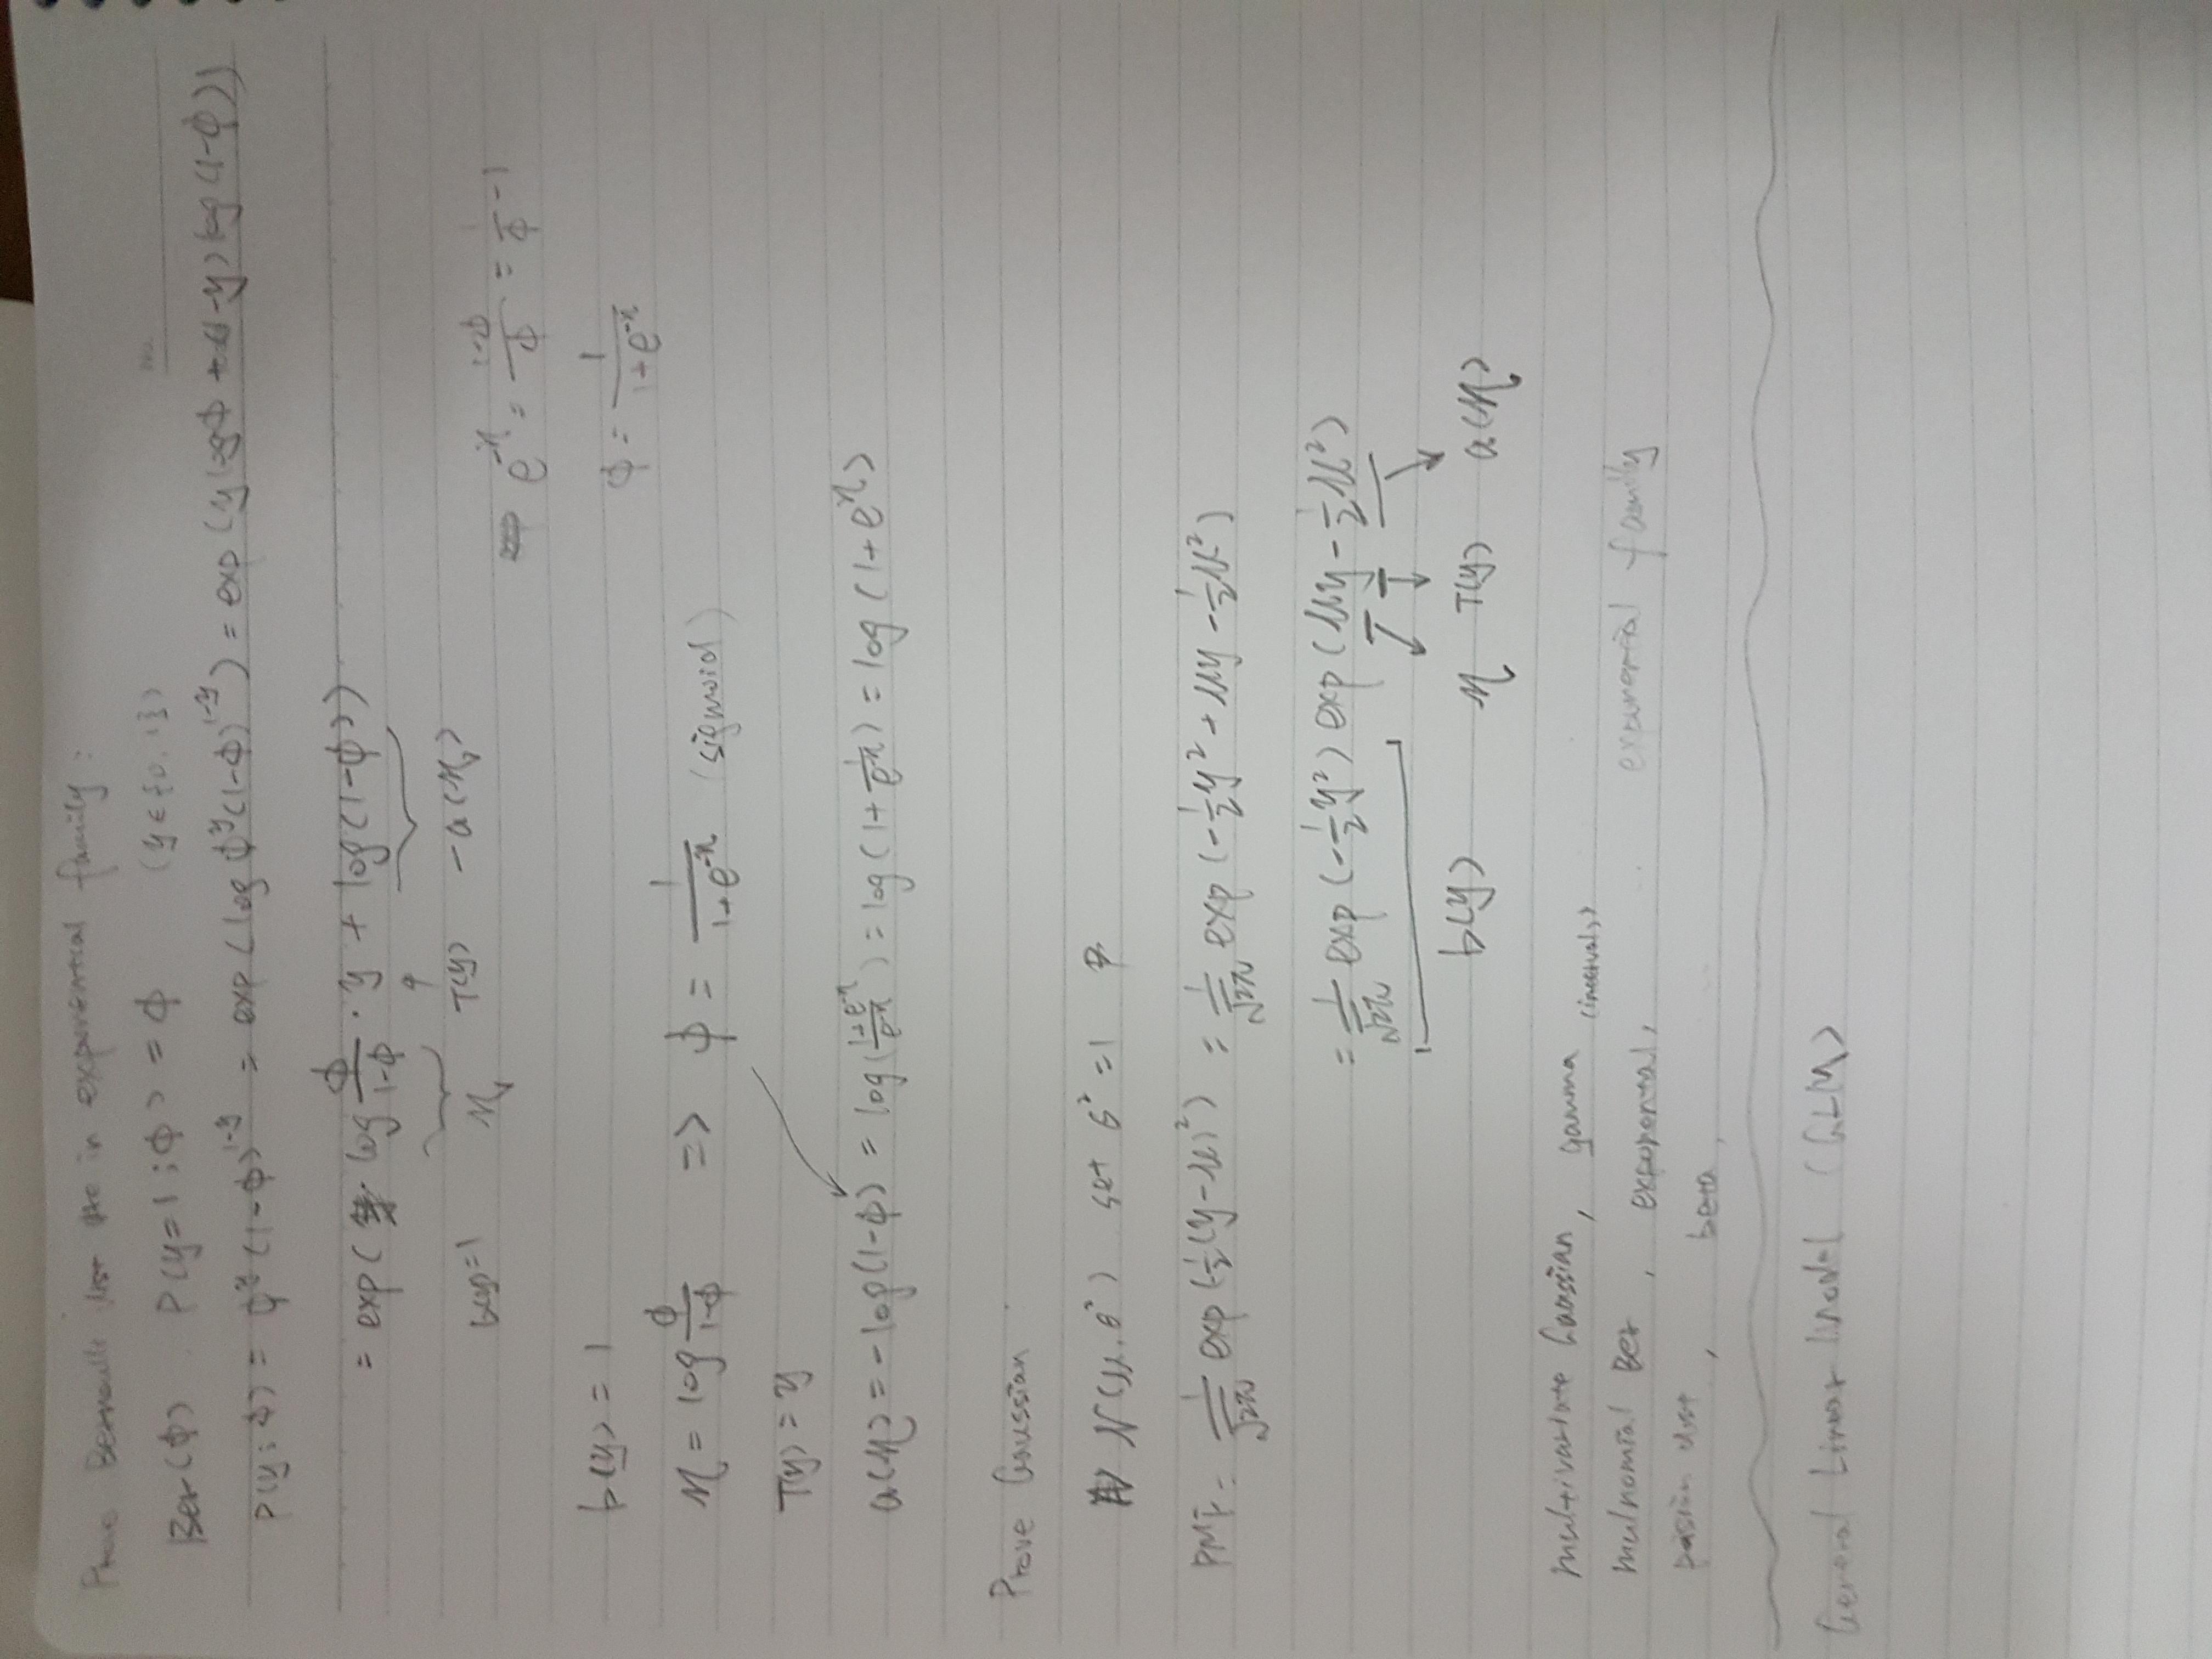 Prove Bernoulli dist in exponential family :
No.
Ber(ϕ) P(y=1;ϕ) = ϕ (y∈{0,1})
P(y;ϕ) = ϕ^y (1-ϕ)^{1-y} = exp(log ϕ^y (1-ϕ)^{1-y}) = exp(y logϕ + (1-y) log(1-ϕ))
= exp( log ϕ/(1-ϕ) · y + log(1-ϕ))
b(y)=1 η T(y) -a(η)
e^{-η} = (1-ϕ)/ϕ = 1/ϕ - 1
ϕ = 1/(1+e^{-η})
b(y) = 1
η = log ϕ/(1-ϕ) => ϕ = 1/(1+e^{-η}) (sigmoid)
T(y) = y
a(η) = -log(1-ϕ) = log((1+e^{-η})/e^{-η}) = log(1+1/e^{-η}) = log(1+e^η)
Prove Gaussian
N(μ,σ²) set σ²=1
PMF = 1/√2π exp(-½(y-μ)²) = 1/√2π exp(-½y² + μy - ½μ²)
= 1/√2π exp(-½y²) exp(μy - ½μ²)
b(y) η T(y) a(η)
multivariate Gaussian, gamma (intervals)
mulnomial Ber, exponental, exponential family
dist, beta,
General Linear Model (GLM)